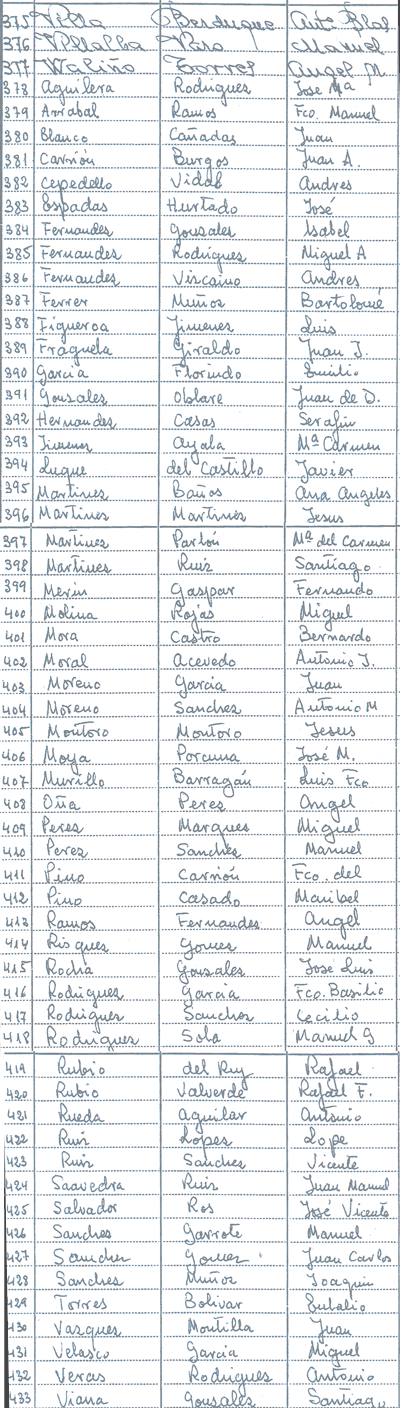 375 Villa Berduque Antº Blas
376 Villalba Varo Manuel
377 Waliño Torres Angel M.
378 Aguilera Rodrigues Jose Mª
379 Arrabal Ramos Fco. Manuel
380 Blanco Cañadas Juan
381 Carrión Burgos Juan A.
382 Cepedello Vidal Andres
383 Espadas Hurtado José
384 Fernandes Gonsales Isabel
385 Fernandes Rodrigues Miguel A
386 Fernandes Viscaino Andres
387 Ferrer Muños Bartolomé
388 Figueroa Jimenes Luis
389 Fraguela Giraldo Juan J.
390 Garcia Florindo Emilio
391 Gonsales Oblare Juan de D.
392 Hernandes Casas Serafin
393 Jimenes Ayala Mª Carmen
394 Luque del Castillo Javier
395 Martines Baños Ana Angeles
396 Martines Martines Jesus
397 Martines Partón Mª del Carmen
398 Martines Ruis Santiago
399 Merin Gaspar Fernando
400 Molina Rojas Miguel
401 Mora Castro Bernardo
402 Moral Acevedo Antonio J.
403 Moreno Garcia Juan
404 Moreno Sanches Antonio M
405 Montoro Montoro Jesus
406 Moya Porcuna José M.
407 Murillo Barragán Luis Fco
408 Oña Peres Angel
409 Peres Marques Miguel
410 Peres Sanches Manuel
411 Pino Carrión Fco. del
412 Pino Casado Maribel
413 Ramos Fernandes Angel
414 Risques Gomes Manuel
415 Rocha Gonsales Jose Luis
416 Rodrigues Garcia Fco. Basilio
417 Rodrigues Sanches Cecilio
418 Rodrigues Sola Manuel G
419 Rubio del Rey Rafael
420 Rubio Valverde Rafael F.
421 Rueda Aguilar Antonio
422 Ruis Lopes Lope
423 Ruis Sanches Vicente
424 Saavedra Ruis Juan Manuel
425 Salvador Ros José Vicente
426 Sanches Garrote Manuel
427 Sanches Gomes Juan Carlos
428 Sanches Muños Joaquin
429 Torres Bolivar Eutalio
430 Vasques Montilla Juan
431 Velasco Garcia Miguel
432 Veras Rodrigues Antonio
433 Viana Gonsales Santiago